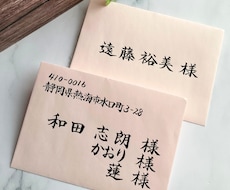 遠藤裕美様
410-0016
静岡県熱海市水口町3-28
和田 志朗 様
かおり 様
蓮 様